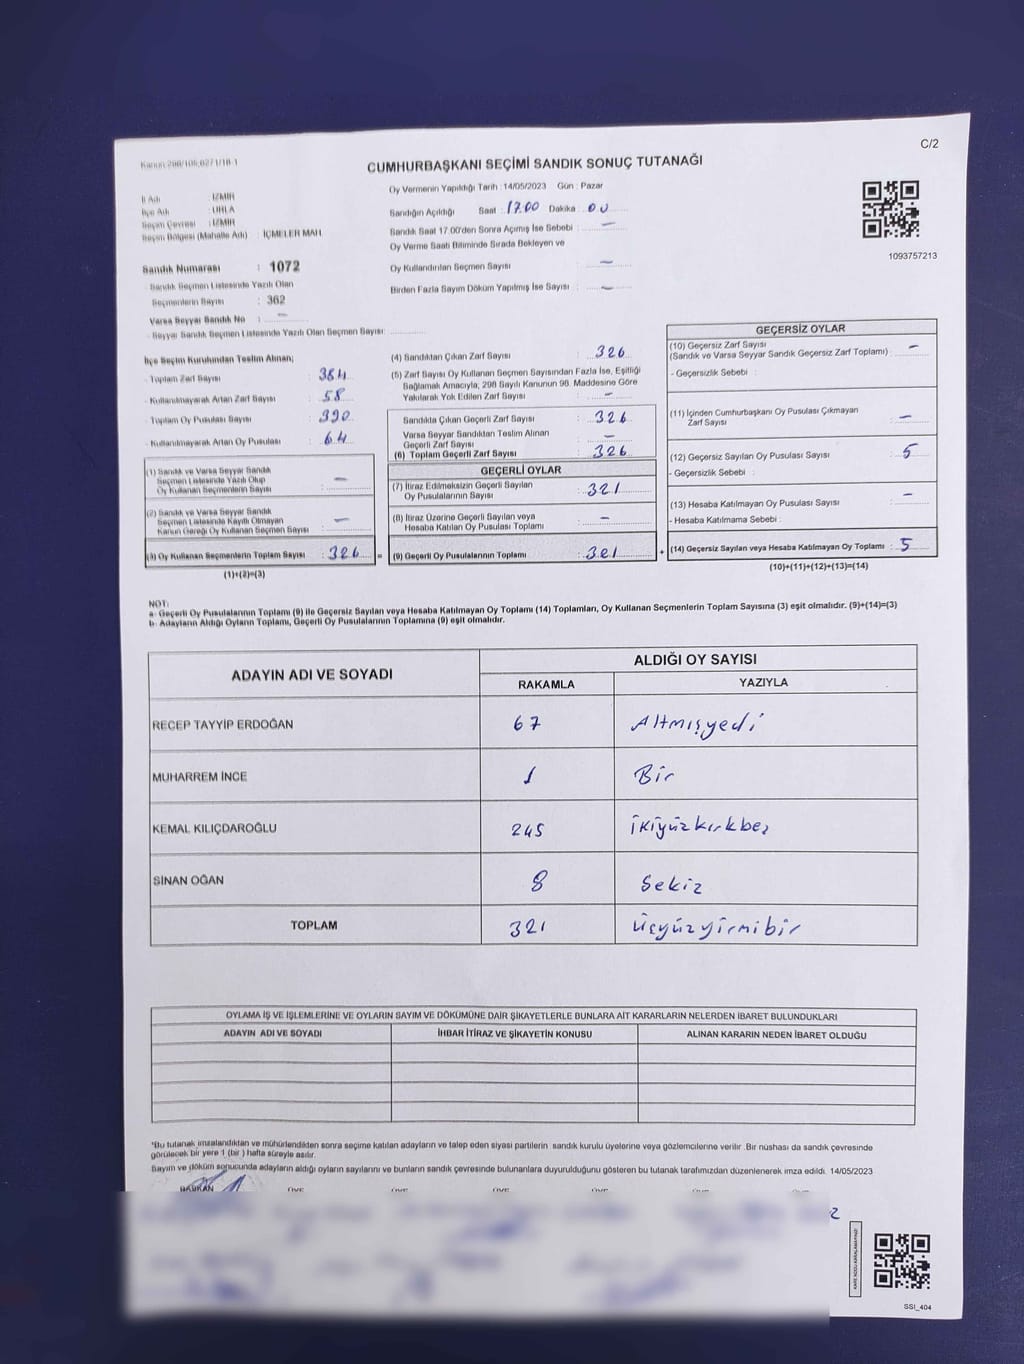 Kanun 298/105,627 1/18-1
C/2
CUMHURBAŞKANI SEÇİMİ SANDIK SONUÇ TUTANAĞI
İl Adı : İZMİR
İlçe Adı : URLA
Seçim Çevresi : İZMİR
Seçim Bölgesi (Mahalle Adı) : İÇMELER MAH.
Sandık Numarası : 1072
Sandık Seçmen Listesinde Yazılı Olan
Seçmenlerin Sayısı : 362
Varsa Seyyar Sandık No : —
- Seyyar Sandık Seçmen Listesinde Yazılı Olan Seçmen Sayısı:
Oy Vermenin Yapıldığı Tarih : 14/05/2023 Gün : Pazar
Sandığın Açıldığı Saat : 17.00 Dakika : 00
Sandık Saat 17.00'den Sonra Açımış İse Sebebi : —
Oy Verme Saati Bitiminde Sırada Bekleyen ve
Oy Kullandırılan Seçmen Sayısı : —
Birden Fazla Sayım Döküm Yapılmış İse Sayısı : —
1093757213
İlçe Seçim Kurulundan Teslim Alınan;
- Toplam Zarf Sayısı : 384
- Kullanılmayarak Artan Zarf Sayısı : 58
- Toplam Oy Pusulası Sayısı : 390
- Kullanılmayarak Artan Oy Pusulası : 64
(1) Sandık ve Varsa Seyyar Sandık
Seçmen Listesinde Yazılı Olup
Oy Kullanan Seçmenlerin Sayısı : —
(2) Sandık ve Varsa Seyyar Sandık
Seçmen Listesinde Kayıtlı Olmayan
Kanun Gereği Oy Kullanan Seçmen Sayısı : —
(3) Oy Kullanan Seçmenlerin Toplam Sayısı : 326 =
(1)+(2)=(3)
(4) Sandıktan Çıkan Zarf Sayısı : 326
(5) Zarf Sayısı Oy Kullanan Seçmen Sayısından Fazla İse, Eşitliği
Sağlamak Amacıyla, 298 Sayılı Kanunun 98. Maddesine Göre
Yakılarak Yok Edilen Zarf Sayısı : —
Sandıkta Çıkan Geçerli Zarf Sayısı : 326
Varsa Seyyar Sandıktan Teslim Alınan
Geçerli Zarf Sayısı : —
(6) Toplam Geçerli Zarf Sayısı : 326
GEÇERLİ OYLAR
(7) İtiraz Edilmeksizin Geçerli Sayılan
Oy Pusulalarının Sayısı : 321
(8) İtiraz Üzerine Geçerli Sayılan veya
Hesaba Katılan Oy Pusulası Toplamı : —
(9) Geçerli Oy Pusulalarının Toplamı : 321 +
GEÇERSİZ OYLAR
(10) Geçersiz Zarf Sayısı : —
(Sandık ve Varsa Seyyar Sandık Geçersiz Zarf Toplamı)
- Geçersizlik Sebebi :
(11) İçinden Cumhurbaşkanı Oy Pusulası Çıkmayan
Zarf Sayısı : —
(12) Geçersiz Sayılan Oy Pusulası Sayısı : 5
- Geçersizlik Sebebi :
(13) Hesaba Katılmayan Oy Pusulası Sayısı : —
- Hesaba Katılmama Sebebi :
(14) Geçersiz Sayılan veya Hesaba Katılmayan Oy Toplamı : 5
(10)+(11)+(12)+(13)=(14)
NOT:
a- Geçerli Oy Pusulalarının Toplamı (9) ile Geçersiz Sayılan veya Hesaba Katılmayan Oy Toplamı (14) Toplamları, Oy Kullanan Seçmenlerin Toplam Sayısına (3) eşit olmalıdır. (9)+(14)=(3)
b- Adayların Aldığı Oyların Toplamı, Geçerli Oy Pusulalarının Toplamına (9) eşit olmalıdır.
ADAYIN ADI VE SOYADI ALDIĞI OY SAYISI
RAKAMLA YAZIYLA
RECEP TAYYİP ERDOĞAN 67 Altmışyedi
MUHARREM İNCE 1 Bir
KEMAL KILIÇDAROĞLU 245 ikiyüzkırkbeş
SİNAN OĞAN 8 Sekiz
TOPLAM 321 Üçyüzyirmibir
OYLAMA İŞ VE İŞLEMLERİNE VE OYLARIN SAYIM VE DÖKÜMÜNE DAİR ŞİKAYETLERLE BUNLARA AİT KARARLARIN NELERDEN İBARET BULUNDUKLARI
ADAYIN ADI VE SOYADI İHBAR İTİRAZ VE ŞİKAYETİN KONUSU ALINAN KARARIN NEDEN İBARET OLDUĞU
*Bu tutanak imzalandıktan ve mühürlendikten sonra seçime katılan adayların ve talep eden siyasi partilerin sandık kurulu üyelerine veya gözlemcilerine verilir. Bir nüshası da sandık çevresinde
görülecek bir yere 1 (bir) hafta süreyle asılır.
Sayım ve döküm sonucunda adayların aldığı oyların sayılarını ve bunların sandık çevresinde bulunanlara duyurulduğunu gösteren bu tutanak tarafımızdan düzenlenerek imza edildi. 14/05/2023
BAŞKAN ÜYE ÜYE ÜYE ÜYE ÜYE ÜYE
SSI_404